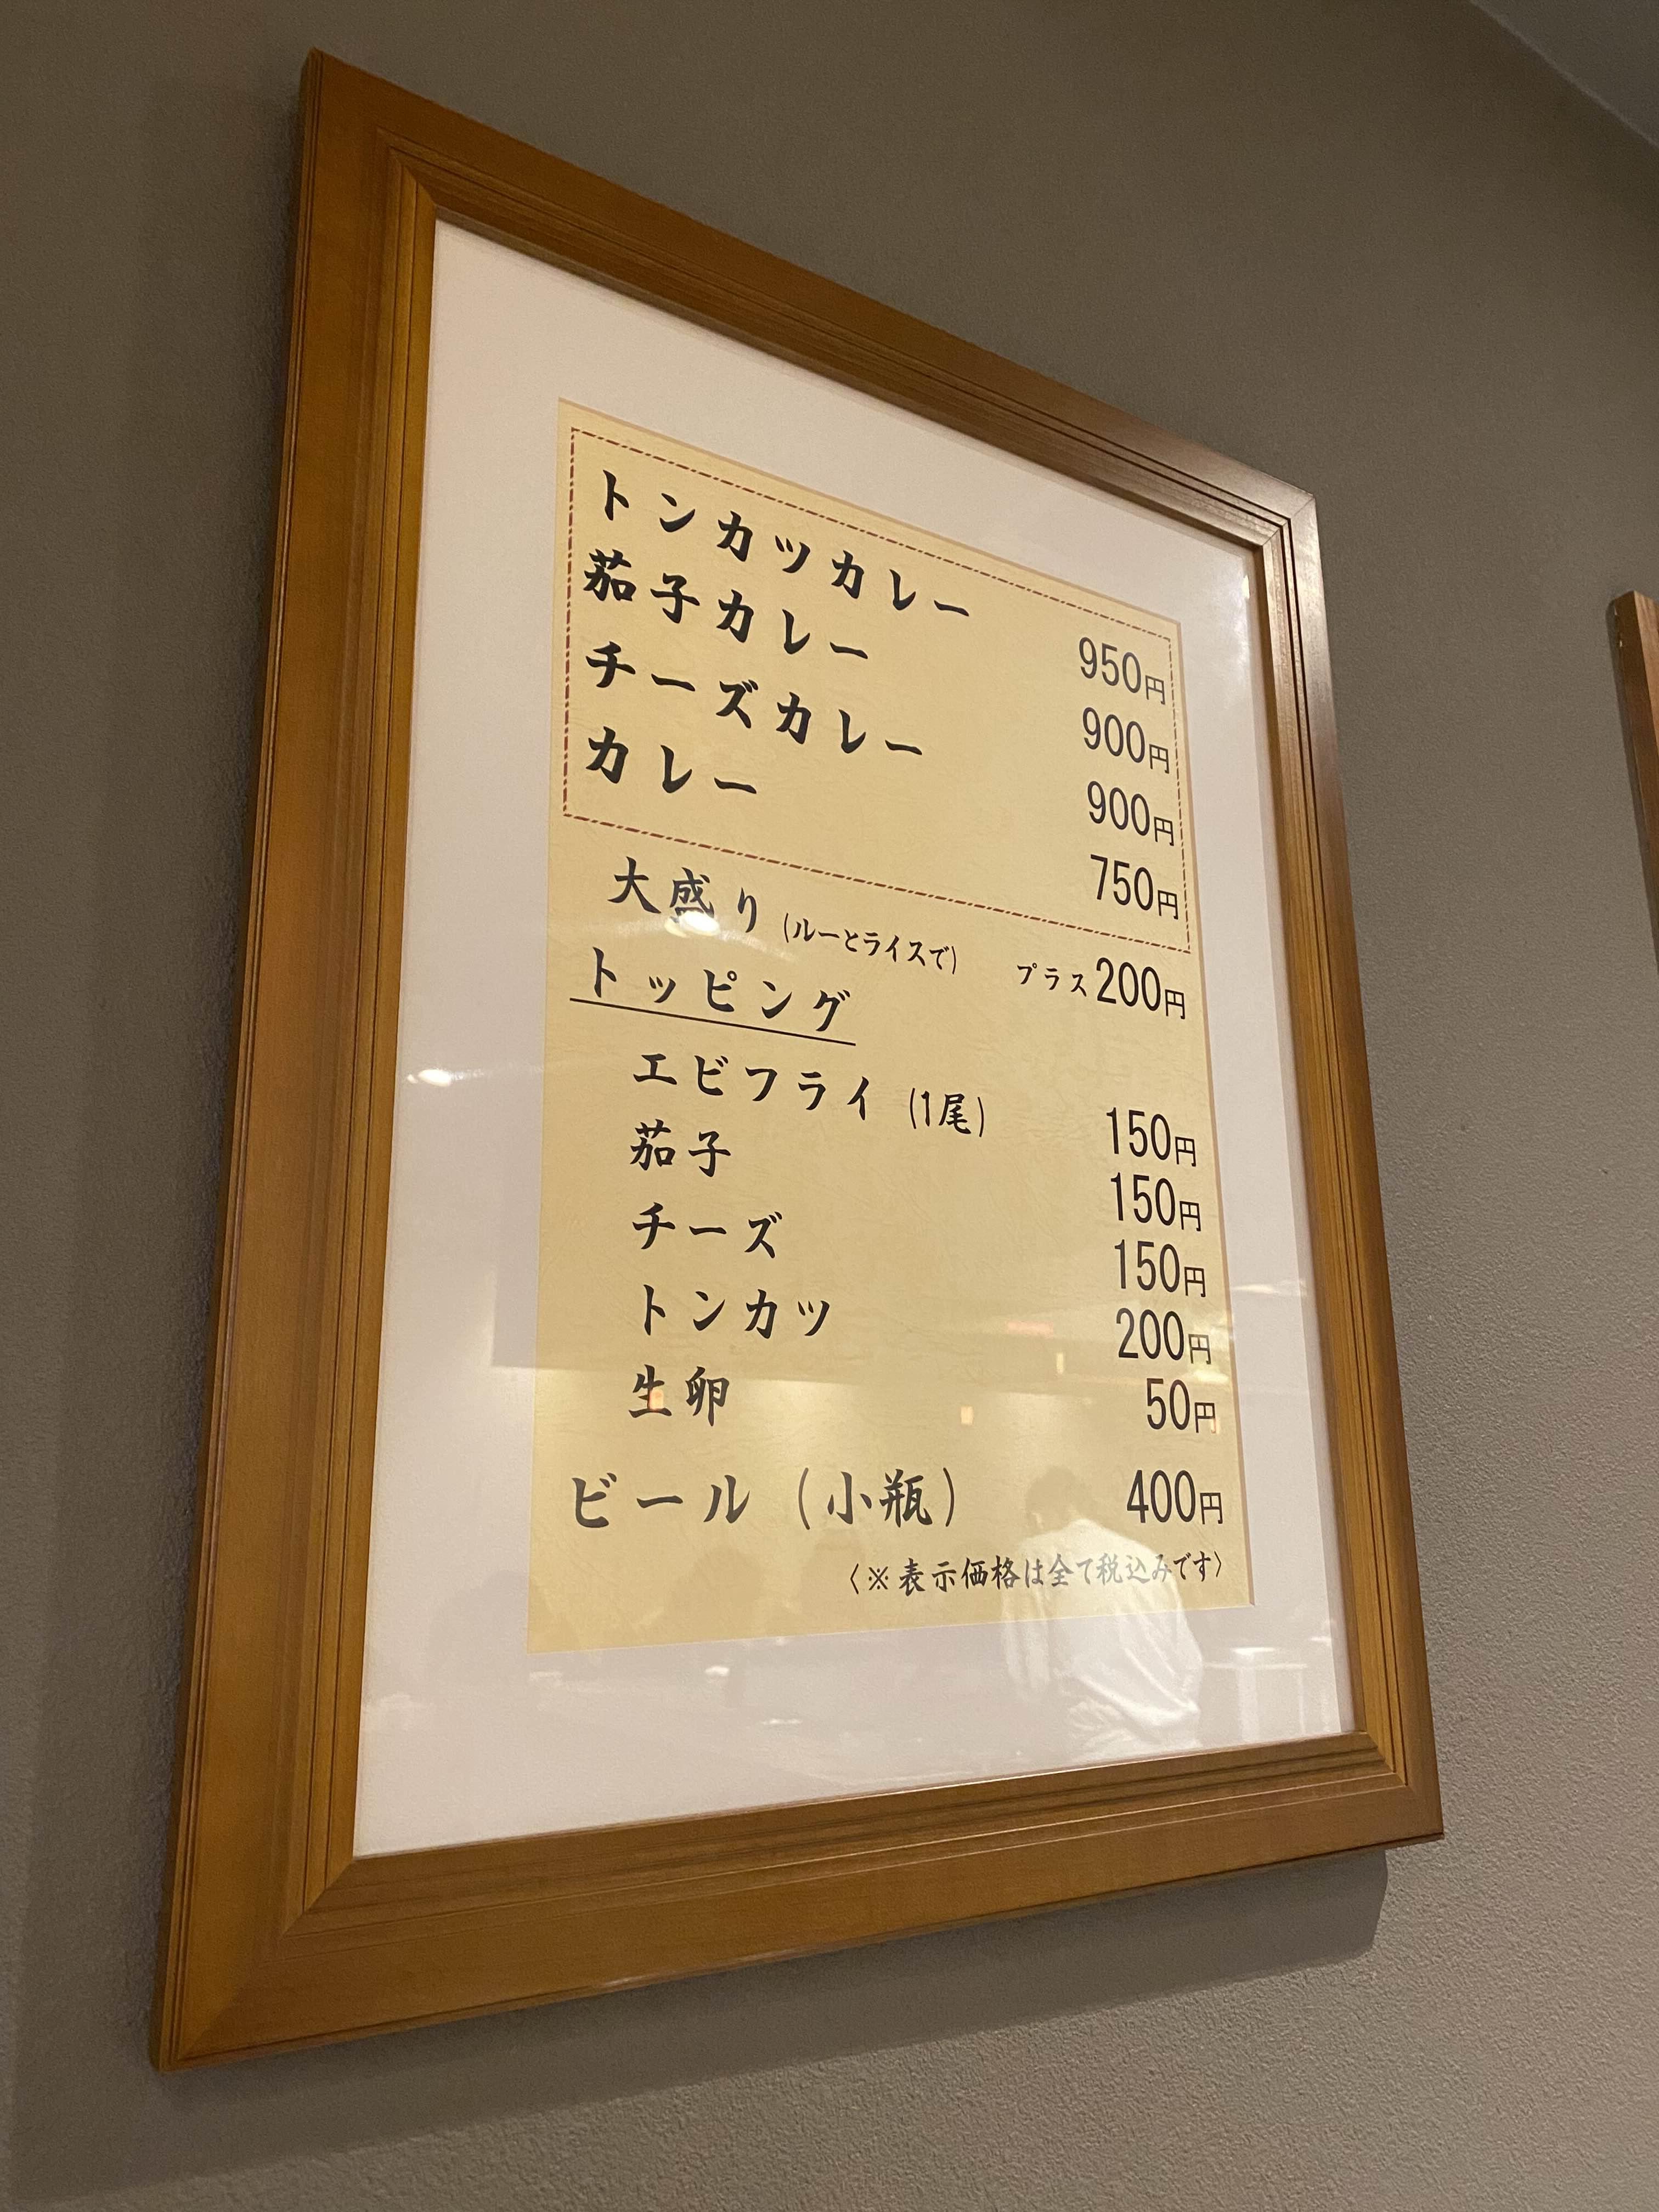 トンカツカレー 950円
茄子カレー 900円
チーズカレー 900円
カレー 750円
大盛り (ルーとライスで) プラス200円
トッピング
エビフライ (1尾) 150円
茄子 150円
チーズ 150円
トンカツ 200円
生卵 50円
ビール (小瓶) 400円
〈※表示価格は全て税込みです〉